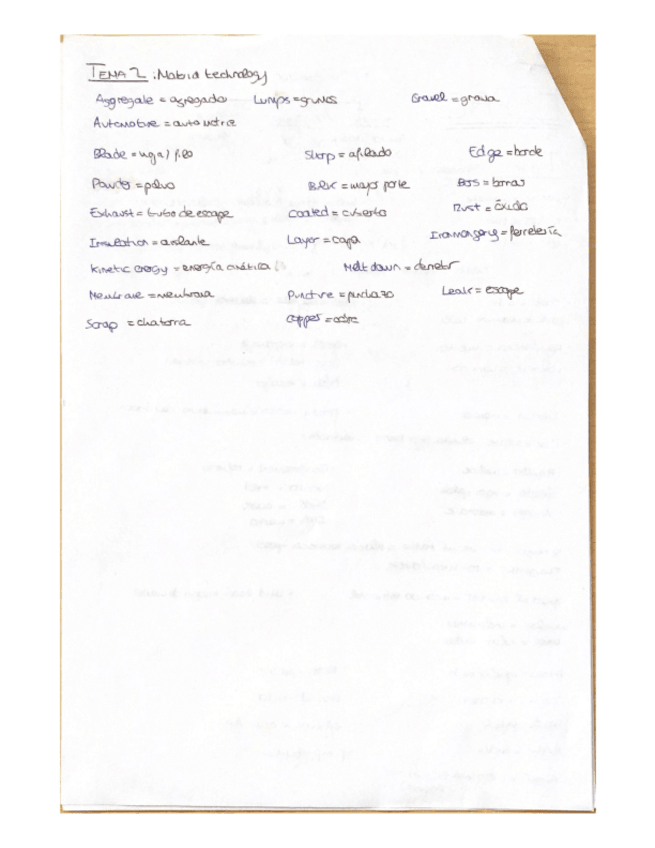 TEMA 2. Material technology
Aggregate = agregado Lumps = grumos Gravel = grava
Automotive = automotriz
Blade = / filo Sharp = afilado Edge = borde
Powder = polvo Bulk = mayor parte Bits =
Exhaust = tubo de escape Coated = cubierto Rust = óxido
Insulation = aislante Layer = capa Ironmongery = ferretería
Kinetic energy = energía cinética Melt down = derretir
Membrane = membrana Puncture = pinchazo Leak = escape
Scrap = chatarra Copper = cobre